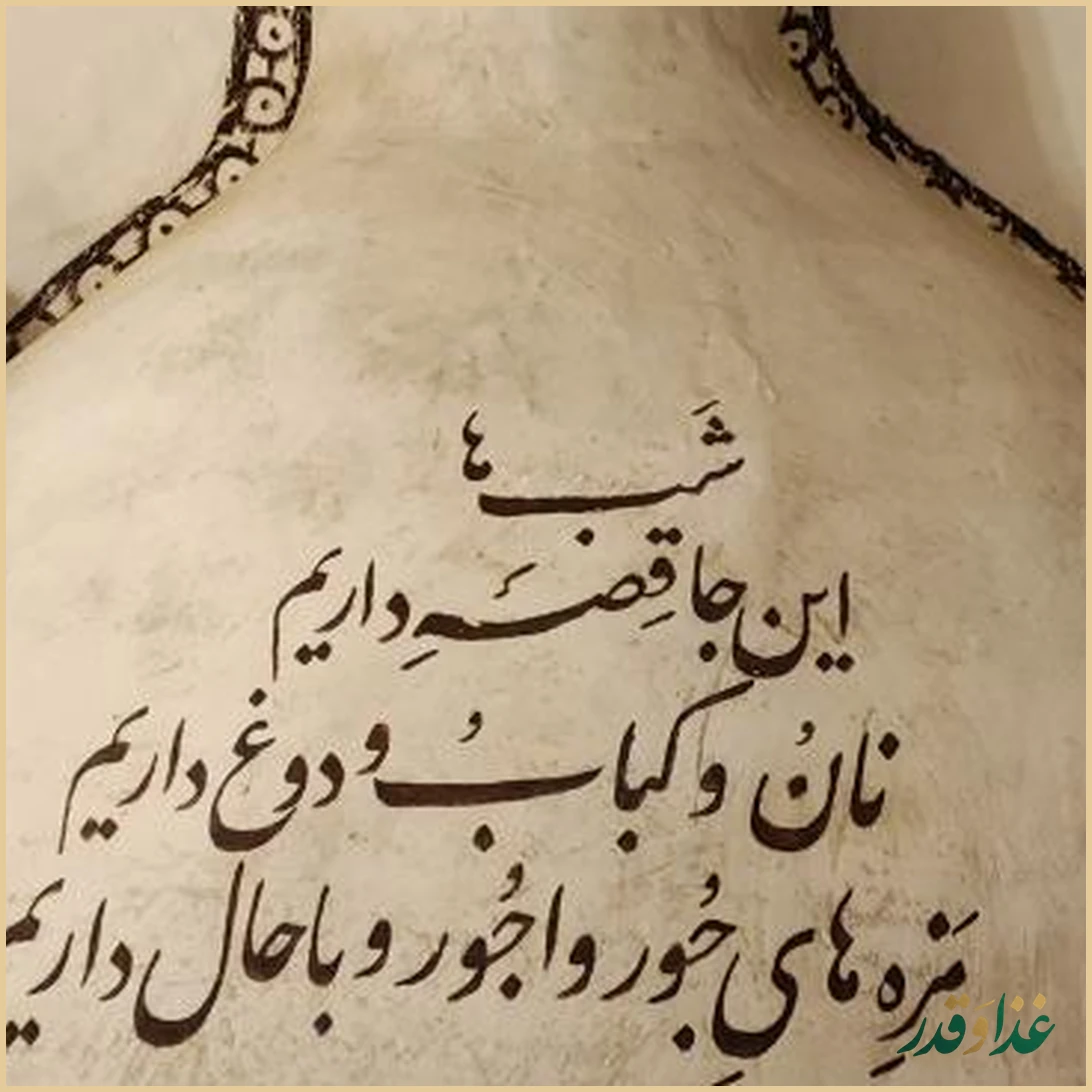 شَب‌ها
این جا قِصّهِ داریم
نانُ و کبابُ و دوغ داریم
مَزهِ های جُور واجُور و باحال داریم
غذا و قدر